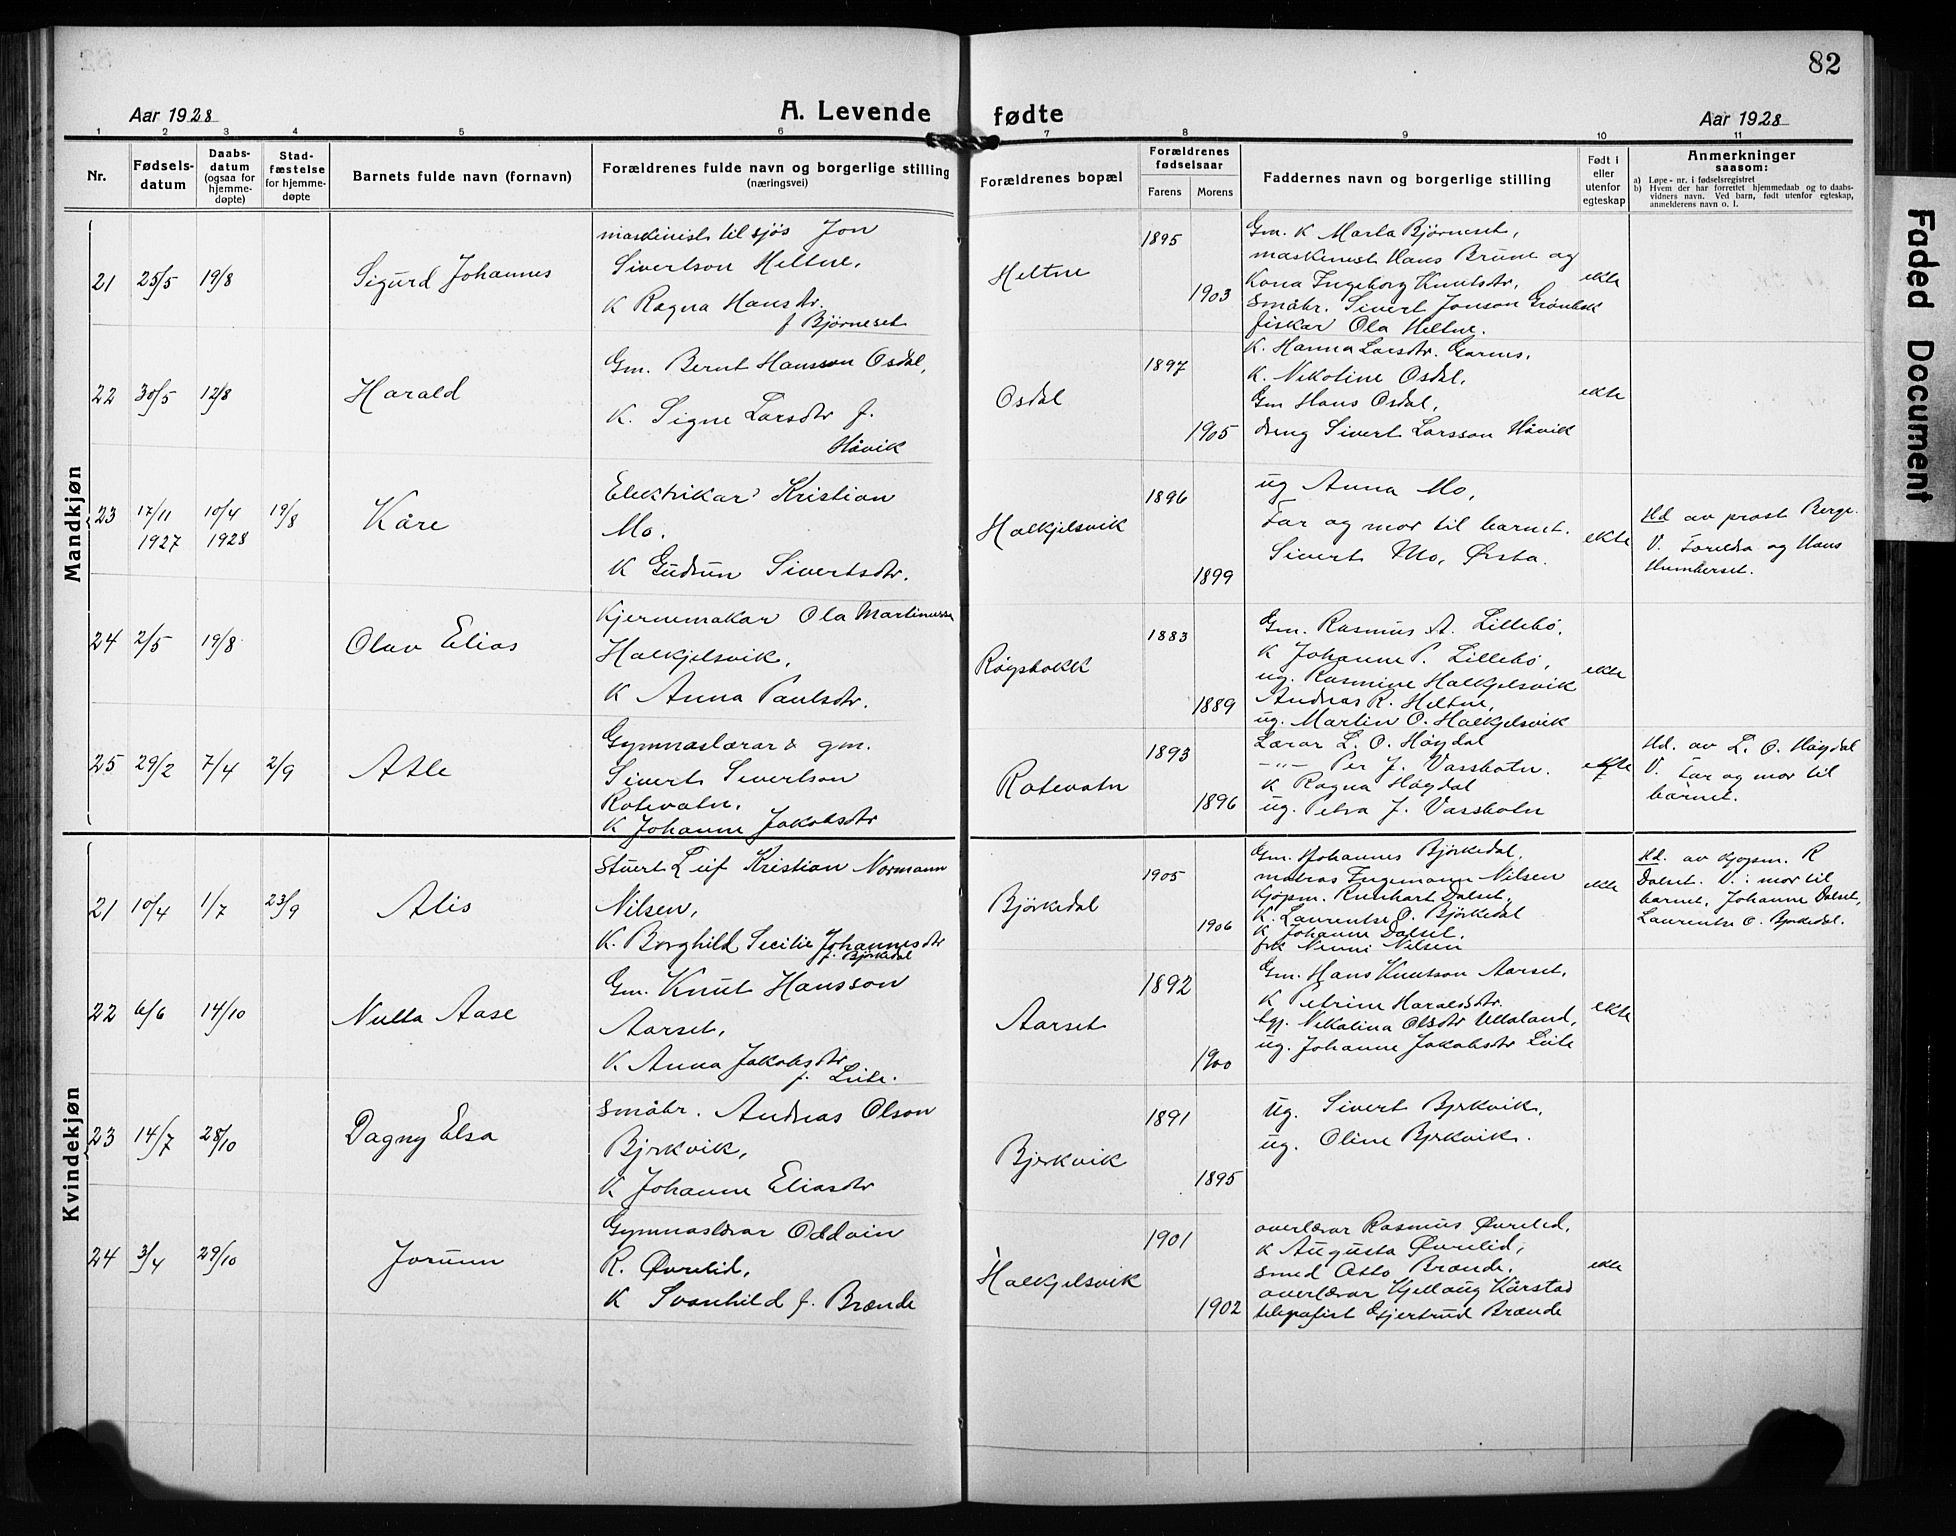 82
Aar 1928
A. Levende fødte
Aar 1928
1 2 3 4 5 6 7 8 9 10 11
Nr.
Fødsels-
datum
Daabs-
datum
(ogsaa for
hjemme-
døpte)
Stad-
fæstelse
for hjemme-
døpte
Barnets fulde navn (fornavn)
Forældrenes fulde navn og borgerlige stilling
(næringsvei)
Forældrenes bopæl
Forældrenes
fødselsaar
Farens
Morens
Faddernes navn og borgerlige stilling
Født i
eller
utenfor
egteskap
Anmerkninger
saasom:
a) Løpe-nr. i fødselsregistret
b) Hvem der har forrettet hjemmedaab og to daabs-
vidners navn. Ved barn, født utenfor egteskap,
anmelderens navn o. l.
Mandkjøn
21 25/5 19/8
Sigurd Johannes
maskinist til sjøs Jon
Sivertson Heltne,
K Ragna Hansdtr.
f Bjørneset
Heltne
1895
1903
Gm. K Marta Bjørneset,
maskinist Hans Brune og
Kona Ingeborg Knutsdtr,
Småbr. Sivert Jonson
fiskar Ola Heltne.
ekte
22 30/5 12/8
Harald
Gm. Bernt Hansson Osdal,
K. Signe Larsdtr f.
Håvik
Osdal
1897
1905
K. Hanna Larsdtr.
K. Nikoline Osdal,
Gm Hans Osdal,
dreng Sivert Larsson Håvik
ekte
23 17/11 10/4 19/8
1927 1928
Kåre
Elektrikar Kristian
Mo.
K Gudrun Sivertsdtr.
Halkjelsvik
1896
1899
ug Anna Mo,
Far og mor til barnet.
Sivert Mo, Ørsta.
ekte
Hd av prost Berge.
V. Foreldra og Hans
Humberset.
24 2/5 19/8
Olav Elias
Kjernemakar Ola Martinusson
Halkjelsvik,
K Anna Paulsdtr.
1883
1889
Gm. Rasmus A. Lillebø,
K Johanne P. Lillebø,
ug. Rasmine Halkjelsvik
Andreas R. Heltne,
ug. Martin O. Halkjelsvik
ekte
25 29/2 7/4 2/9
Atle
Gymnaslærar & gm.
Sivert Sivertson
Rotevatn,
K Johanne Jakobsdtr
Rotevatn
1893
1896
Lærar L. O. Høydal
-"- Per J. Vassbotn.
K Ragna Høydal
ug. Petra J. Vassbotn
ekte
Hd. av L. O. Høydal
V. Far og mor til
barnet.
Kvindekjøn
21 10/4 1/7 23/9
Alis
Stuert Leif Kristian Normann
Nilsen,
K. Borghild Secilie Johannesdtr
f. Bjørkedal
Bjørkedal
1905
1906
Gm. Johannes Bjørkedal,
matros Ingemann Nilsen
Kjøpm. Reinhart Dalset,
K. Laurentse O. Bjørkedal
K Johanne Dalset,
frk Nenni Nilsen
ekte
Hd. av Kjøpm. R
Dalset. V.: mor til
barnet, Johanne Dalset,
Laurentse O. Bjørkedal.
22 6/6 14/10
Nella Aase
Gm. Knut Hansson
Aarset,
K. Anna Jakobsdtr
f. Liite.
Aarset
1892
1900
Gm. Hans Knutson Aarset,
K Petrine Haraldsdtr.
Nikolina Olsdtr Ulvaland,
ug. Johanne Jakobsdtr Liite
ekte
23 14/7 28/10
Dagny Elsa
Småbr. Andreas Olson
Bjerkvik,
K Johanne Eliasdtr
Bjerkvik
1891
1895
Ug. Sivert Bjerkvik,
ug. Oline Bjerkvik.
24 3/4 29/10
Jorunn
Gymnaslærar Oddvin
R. Øvrelid,
K Svanhild f. Brænde
Halkjelsvik
1901
1902
overlærar Rasmus Øvrelid,
K Augusta Øvrelid,
smed Otto Brænde,
overlærar Kjellaug Kårstad
telegrafist Gjertrud Brænde
ekte
Faded Document